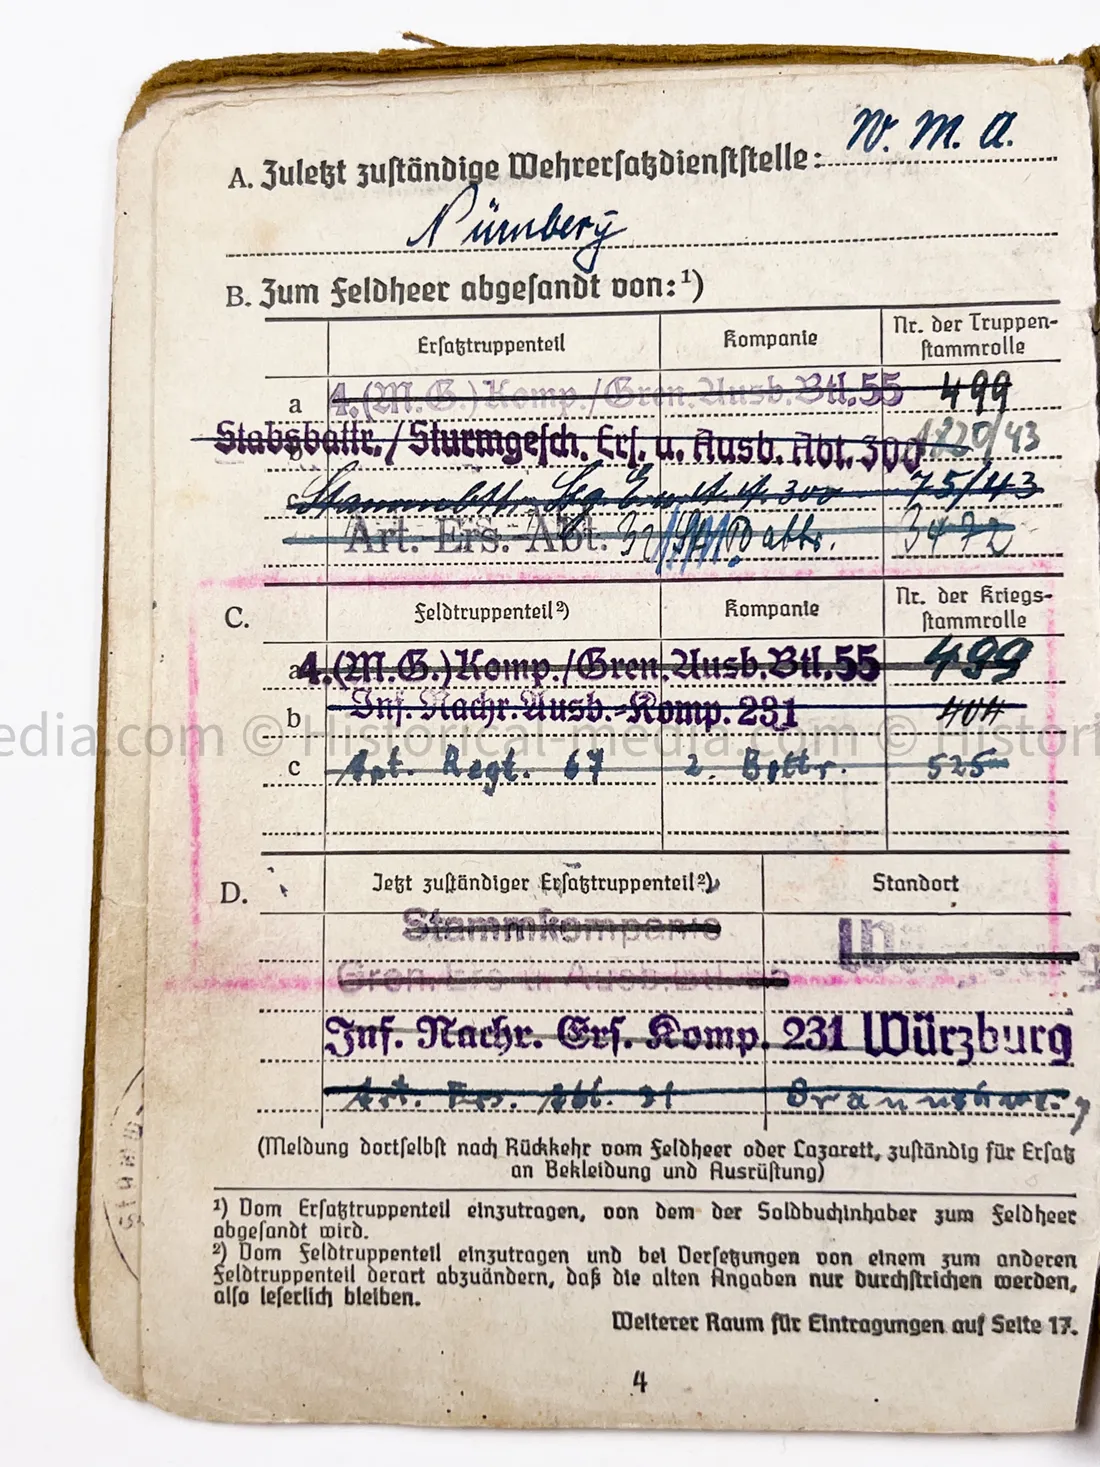 A. Zuletzt zuständige Wehrersatzdienststelle: W. M. A.
Nürnberg
B. Zum Feldheer abgesandt von:¹)
Ersatztruppenteil Kompanie Nr. der Truppen-
stammrolle
a 4.(M.G.)Komp./Gren.Ausb.Btl.55 499
b Stabsbattr./Sturmgesch. Ers. u. Ausb. Abt. 300 1820/43
c 300 75/43
Art. Ers. Abt. 3472
C. Feldtruppenteil²) Kompanie Nr. der Kriegs-
stammrolle
a 4.(M.G.)Komp./Gren.Ausb.Btl.55 499
b Inf. Nachr. Ausb.-Komp. 231 404
edia.com © Historical-media.com © Histori
c Art. Regt. 67 2. Battr. 525
D. Jetzt zuständiger Ersatztruppenteil²) Standort
Stammkompanie
Gren. Ers. u. Ausb. Btl. 55
Inf. Nachr. Ers. Komp. 231 Würzburg
Art. Ers. Abt. 31 Braunschweig
(Meldung dortselbst nach Rückkehr vom Feldheer oder Lazarett, zuständig für Ersatz
an Bekleidung und Ausrüstung)
¹) Vom Ersatztruppenteil einzutragen, von dem der Soldbuchinhaber zum Feldheer
abgesandt wird.
²) Vom Feldtruppenteil einzutragen und bei Versetzungen von einem zum anderen
Feldtruppenteil derart abzuändern, daß die alten Angaben nur durchstrichen werden,
also leserlich bleiben.
Weiterer Raum für Eintragungen auf Seite 17.
4